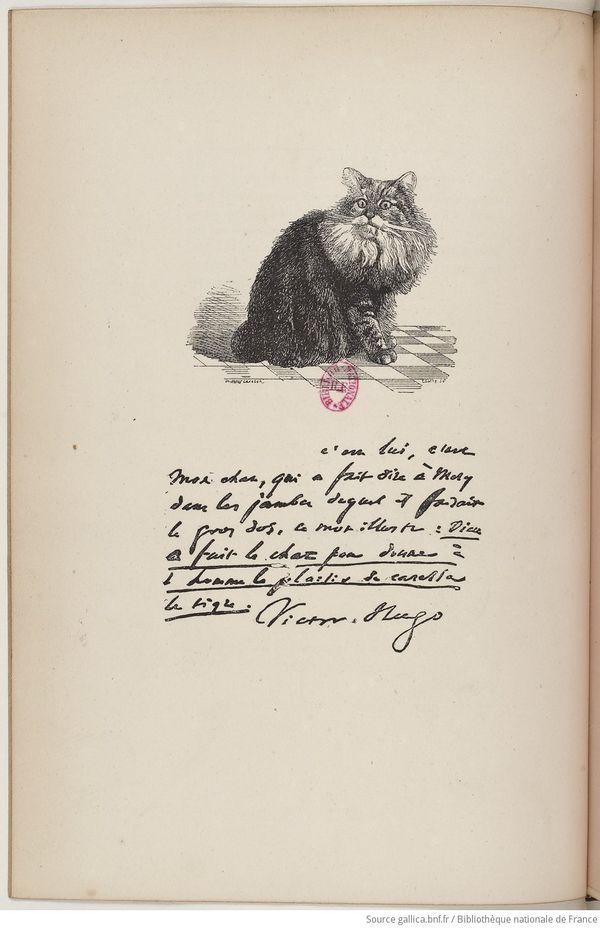 c'est lui, c'est
mon chat, qui a fait dire à Méry
dans les jambes duquel il faisait
le gros dos, ce mot illustre : Dieu
a fait le chat pour donner à
l'homme le plaisir de caresser
le tigre.
Victor Hugo
Source gallica.bnf.fr / Bibliothèque nationale de France